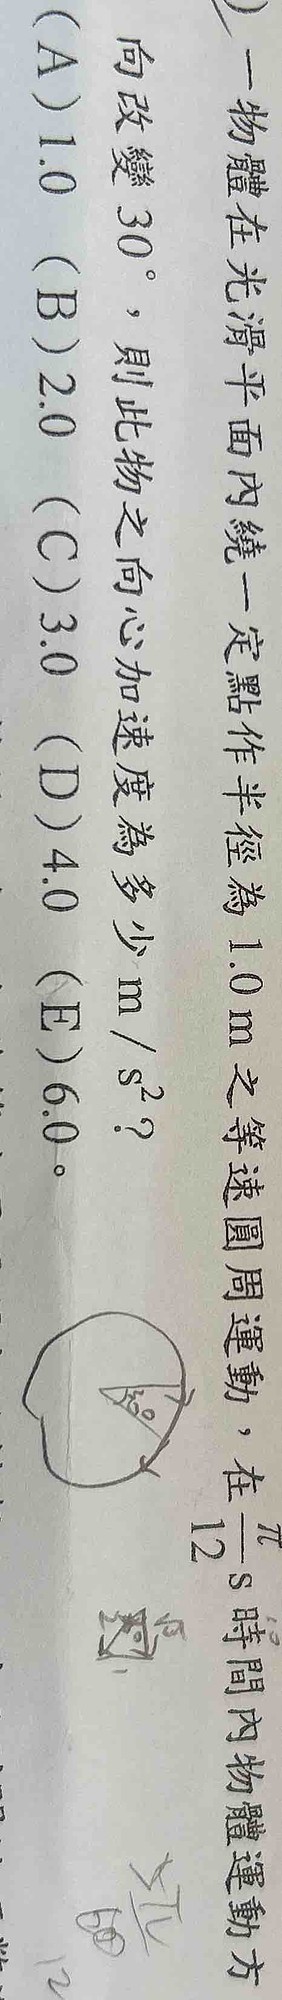 )一物體在光滑平面內繞一定點作半徑為 1.0 m 之等速圓周運動，在 π/12 s 時間內物體運動方
向改變 30°，則此物之向心加速度為多少 m/s²？
(A)1.0 (B)2.0 (C)3.0 (D)4.0 (E)6.0。
30
12